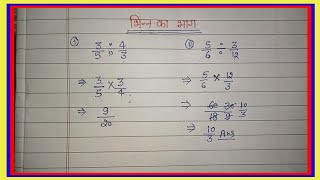 भिन्न का भाग
① 3/5 ÷ 4/3
⇒ 3/5 × 3/4
⇒ 9/20
② 5/6 ÷ 3/12
⇒ 5/6 × 12/3
⇒ 60/18 30/9 10/3
⇒ 10/3 Ans